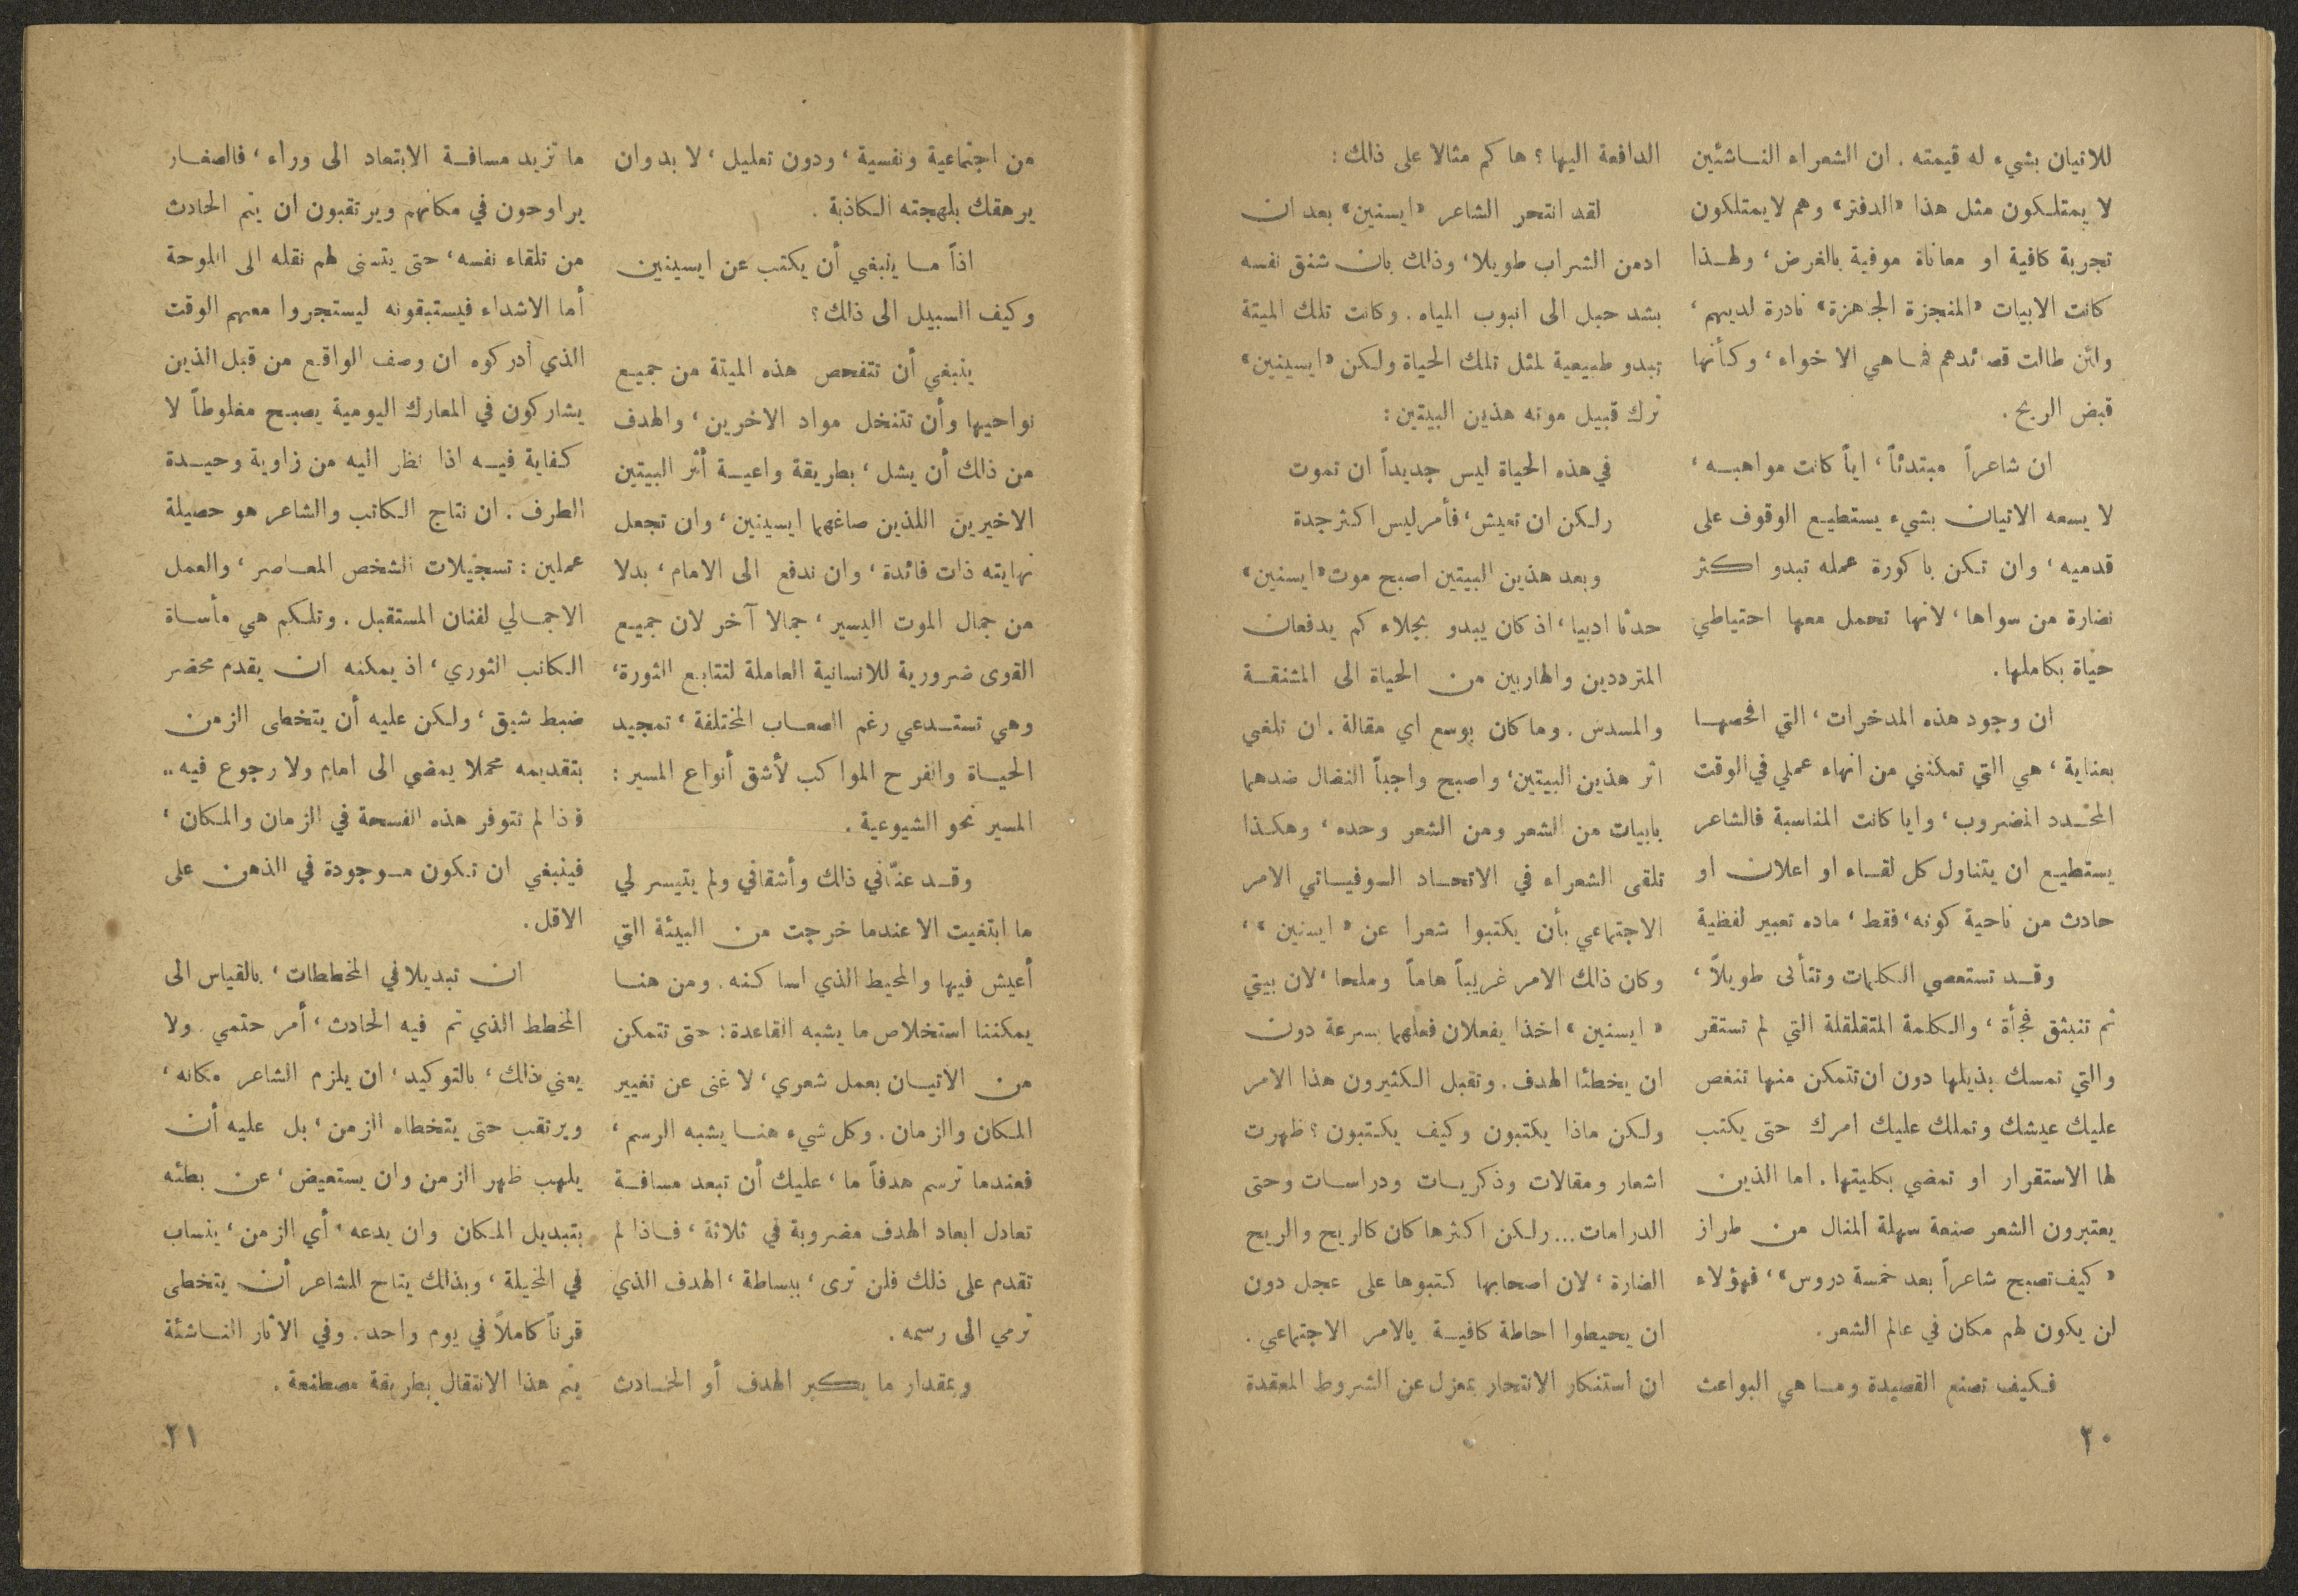 للاتيان بشيء له قيمته . ان الشعراء الناشئين
لا يمتلكون مثل هذا «الدفتر» وهم لا يمتلكون
تجربة كافية او معاناة موفية بالغرض ، ولهذا
كانت الابيات «المنجزة الجاهزة» نادرة لديهم ،
ولئن طالت قصائدهم فما هي الا خواء ، وكأنها
قبض الريح .
ان شاعراً مبتدئاً ، اياً كانت مواهبه ،
لا يسعه الاتيان بشيء يستطيع الوقوف على
قدميه ، وان تكن باكورة عمله تبدو اكثر
نضارة من سواها ، لانها تحمل معها احتياطي
حياة بكاملها .
ان وجود هذه المدخرات ، التي افحصها
بعناية ، هي التي تمكنني من انهاء عملي في الوقت
المحدد المضروب ، وايا كانت المناسبة فالشاعر
يستطيع ان يتناول كل لقاء او اعلان او
حادث من ناحية كونه ، فقط ، ماده تعبير لفظية
وقد تستعصي الكلمات وتتأبى طويلاً ،
ثم تنبثق فجأة ، والكلمة المتقلقلة التي لم تستقر
والتي تمسك بذيلها دون ان تتمكن منها تنغص
عليك عيشك وتملك عليك امرك حتى يكتب
لها الاستقرار او تمضي بكليتها . اما الذين
يعتبرون الشعر صنعة سهلة المنال من طراز
«كيف تصبح شاعراً بعد خمسة دروس» ، فهؤلاء
لن يكون لهم مكان في عالم الشعر .
فكيف تصنع القصيدة وما هي البواعث
٢٠
الدافعة اليها ؟ هاكم مثالا على ذلك :
لقد انتحر الشاعر «ايسنين» بعد ان
ادمن الشراب طويلا ، وذلك بان شنق نفسه
بشد حبل الى انبوب المياه . وكانت تلك الميتة
تبدو طبيعية لمثل تلك الحياة ولكن «ايسينين»
ترك قبيل موته هذين البيتين :
في هذه الحياة ليس جديداً ان تموت
ولكن ان تعيش ، فأمر ليس اكثر جدة
وبعد هذين البيتين اصبح موت «ايسنين»
حدثا ادبيا ، اذ كان يبدو بجلاء كم يدفعان
المترددين والهاربين من الحياة الى المشنقة
والمسدس . وما كان بوسع اي مقالة . ان تلغي
اثر هذين البيتين ، واصبح واجباً النضال ضدهما
بابيات من الشعر ومن الشعر وحده ، وهكذا
تلقى الشعراء في الاتحاد السوفياتي الامر
الاجتماعي بأن يكتبوا شعرا عن «ايسنين» ،
وكان ذلك الامر غريباً هاماً وملحا ، لان بيتي
«ايسنين» اخذا يفعلان فعلهما بسرعة دون
ان يخطئا الهدف . وتقبل الكثيرون هذا الامر
ولكن ماذا يكتبون وكيف يكتبون ؟ ظهرت
اشعار ومقالات وذكريات ودراسات وحتى
الدرامات ... ولكن اكثرها كان كالريح والريح
الضارة ، لان اصحابها كتبوها على عجل دون
ان يحيطوا احاطة كافية بالامر الاجتماعي .
ان استنكار الانتحار بمعزل عن الشروط المعقدة
من اجتماعية ونفسية ، ودون تعليل ، لا بد وان
يرهقك بلهجته الكاذبة .
اذاً ما ينبغي أن يكتب عن ايسينين
وكيف السبيل الى ذلك ؟
ينبغي أن تتفحص هذه الميتة من جميع
نواحيها وأن تتنخل مواد الاخرين ، والهدف
من ذلك أن يشل ، بطريقة واعية أثر البيتين
الاخيرين اللذين صاغهما ايسينين ، وان تجعل
نهايته ذات فائدة ، وان ندفع الى الامام ، بدلا
من جمال الموت اليسير ، جمالا آخر لان جميع
القوى ضرورية للانسانية العاملة لتتابع الثورة ،
وهي تستدعي رغم الصعاب المختلفة ، تمجيد
الحياة والفرح المواكب لأشق أنواع المسير :
المسير نحو الشيوعية .
وقد عنّاني ذلك وأشقاني ولم يتيسر لي
ما ابتغيت الا عندما خرجت من البيئة التي
أعيش فيها والمحيط الذي اساكنه . ومن هنا
يمكننا استخلاص ما يشبه القاعدة : حتى تتمكن
من الاتيان بعمل شعري ، لا غنى عن تغيير
المكان والزمان . وكل شيء هنا يشبه الرسم ،
فعندما ترسم هدفاً ما ، عليك أن تبعد مسافة
تعادل ابعاد الهدف مضروبة في ثلاثة ، فاذا لم
تقدم على ذلك فلن ترى ، ببساطة ، الهدف الذي
ترمي الى رسمه .
وبمقدار ما يكبر الهدف أو الحادث
ما تزيد مسافة الابتعاد الى وراء ، فالصغار
يراوحون في مكانهم ويرتقبون ان يتم الحادث
من تلقاء نفسه ، حتى يتسنى لهم نقله الى اللوحة
أما الاشداء فيستبقونه ليستجروا معهم الوقت
الذي أدركوه ان وصف الواقع من قبل الذين
يشاركون في المعارك اليومية يصبح مغلوطاً لا
كفاية فيه اذا نظر اليه من زاوية وحيدة
الطرف . ان نتاج الكاتب والشاعر هو حصيلة
عملين : تسجيلات الشخص المعاصر ، والعمل
الاجمالي لفنان المستقبل . وتلكم هي مأساة
الكاتب الثوري ، اذ يمكنه ان يقدم محضر
ضبط شيق ، ولكن عليه أن يتخطى الزمن
بتقديمه مجملا يمضي الى امام ولا رجوع فيه ..
فاذا لم تتوفر هذه الفسحة في الزمان والمكان ،
فينبغي ان تكون موجودة في الذهن على
الاقل .
ان تبديلا في المخططات ، بالقياس الى
المخطط الذي تم فيه الحادث ، أمر حتمي . ولا
يعني ذلك ، بالتوكيد ، ان يلزم الشاعر مكانه ،
ويرتقب حتى يتخطاه الزمن ، بل عليه أن
يلهب ظهر الزمن وان يستعيض ، عن بطئه
بتبديل المكان وان يدعه ، أي الزمن ، ينساب
في المخيلة ، وبذلك يتاح للشاعر أن يتخطى
قرناً كاملاً في يوم واحد . وفي الاثار الناشئة
يتم هذا الانتقال بطريقة مصطنعة .
٢١